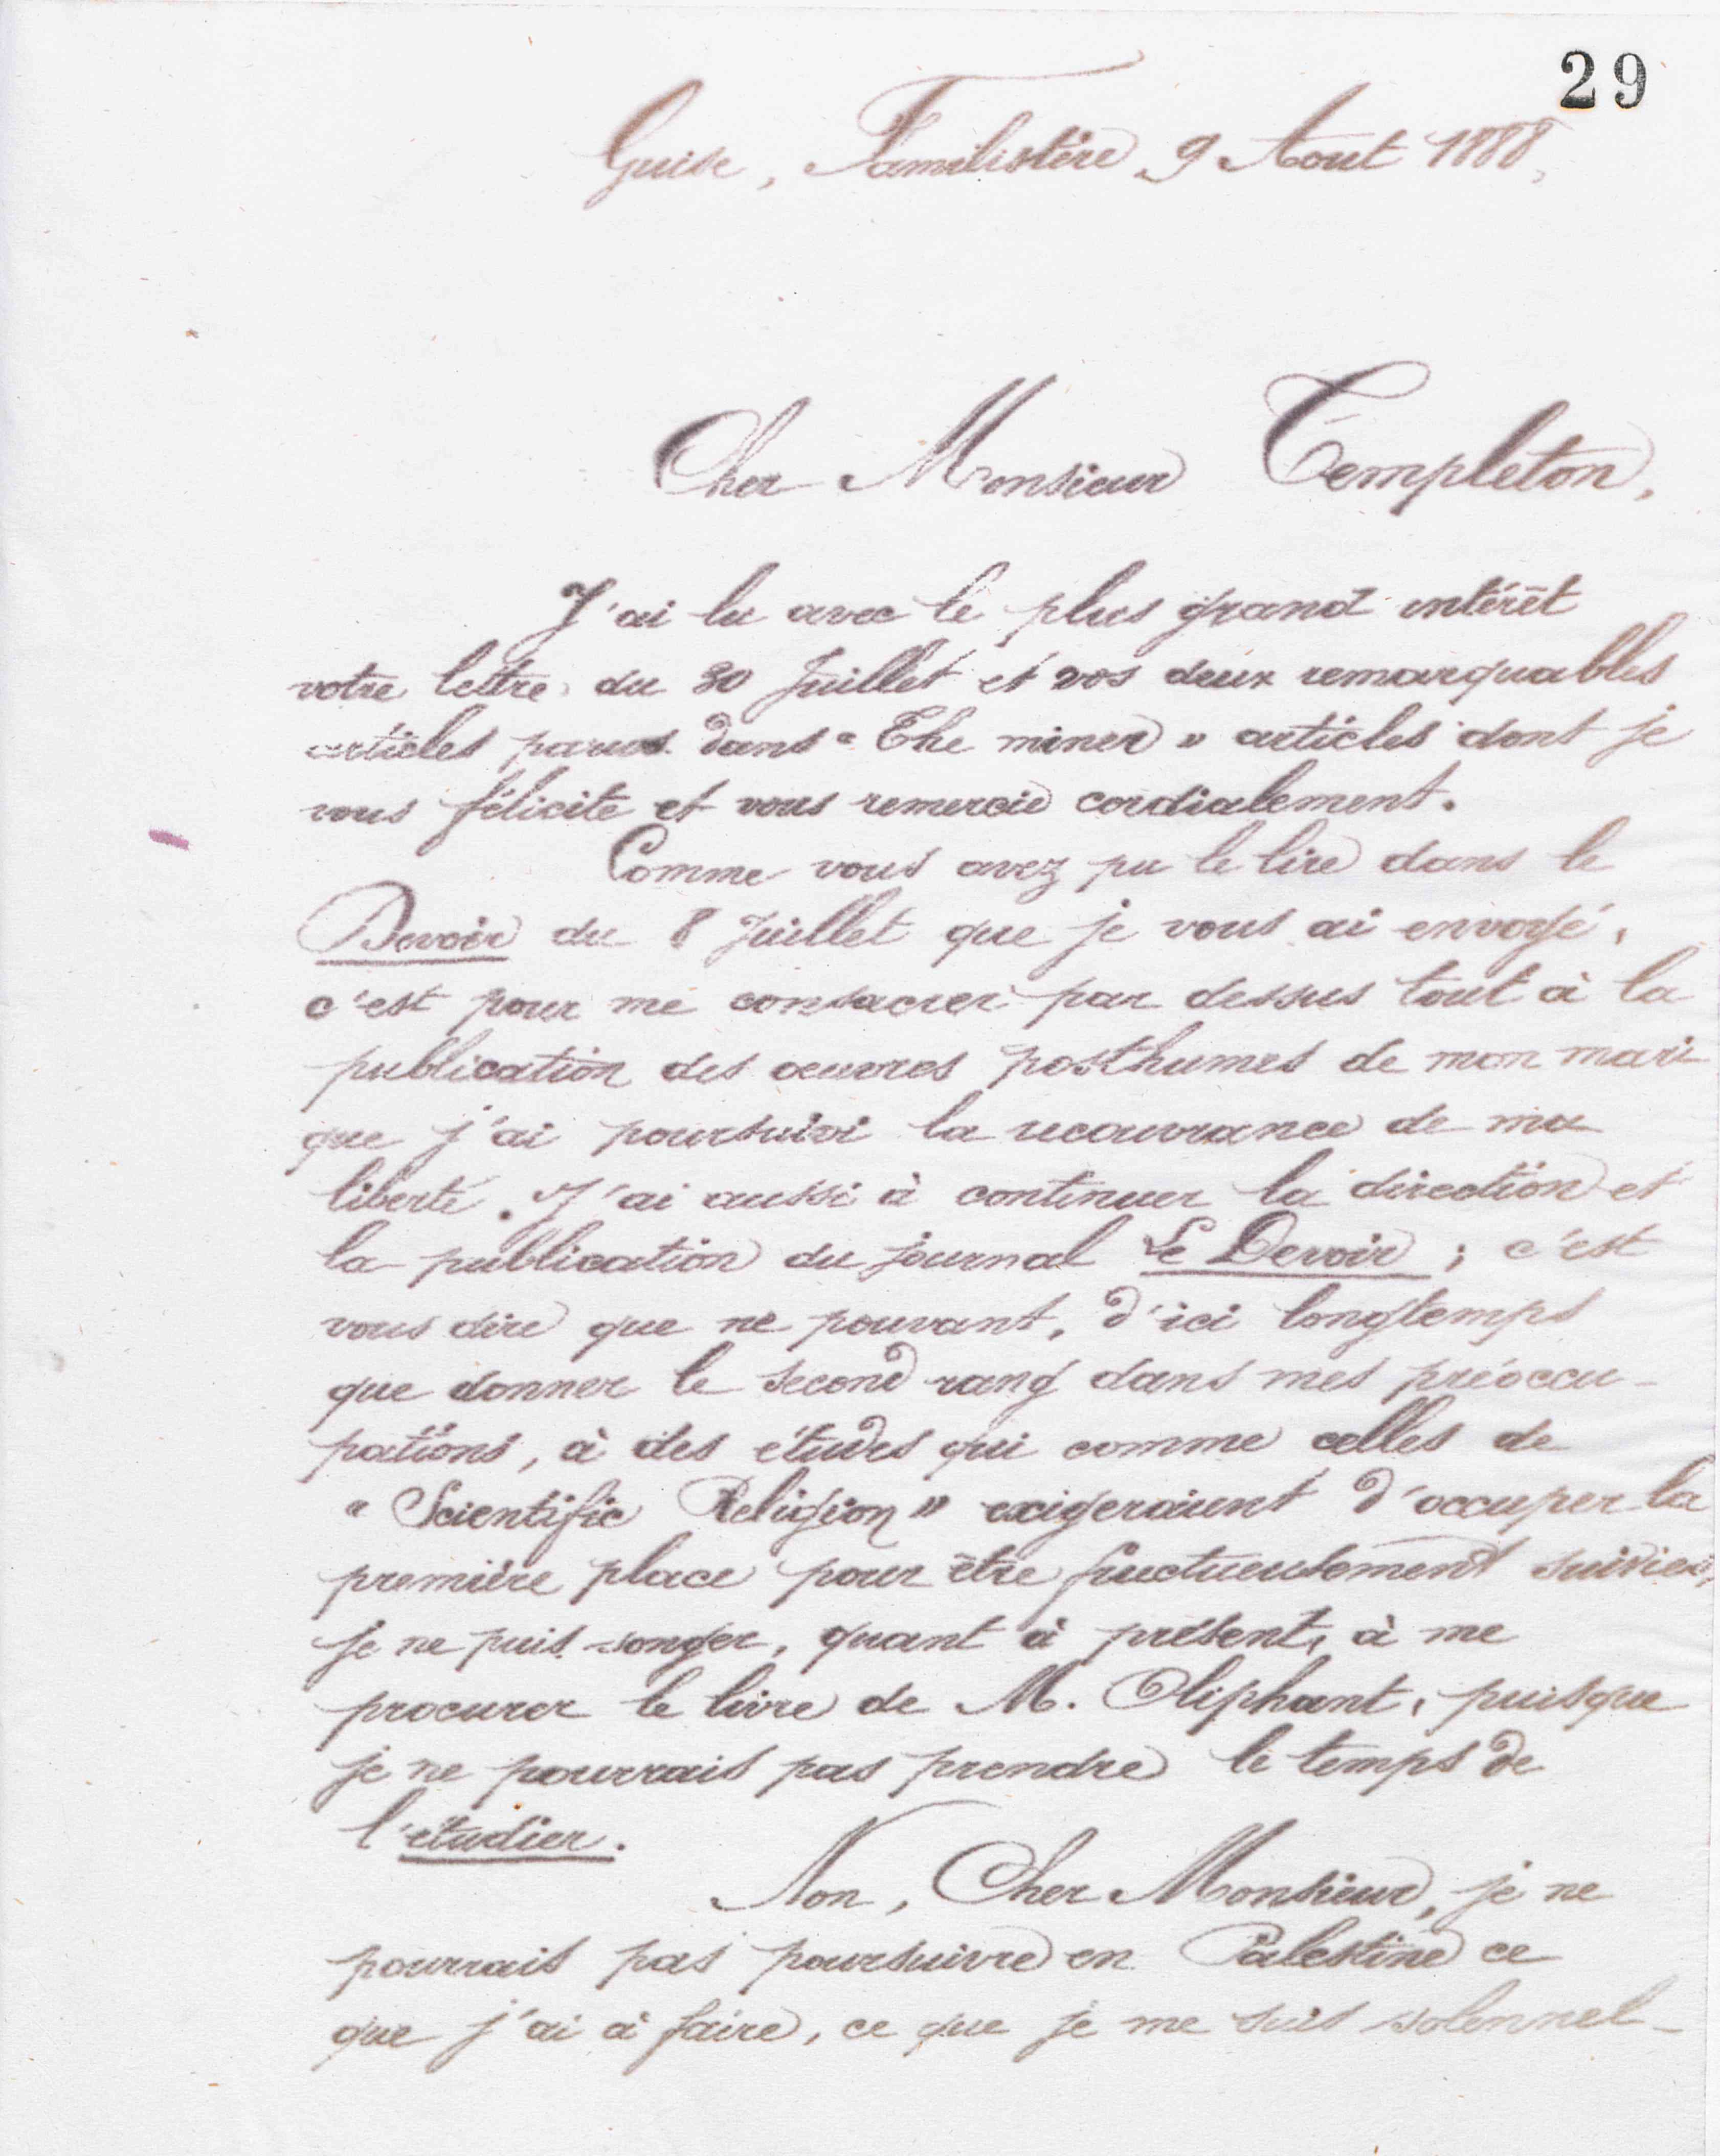 29
Guise, Familistère, 9 Aout 1888,
Cher Monsieur Templeton,
J'ai lu avec le plus grand intérêt
votre lettre du 30 Juillet et vos deux remarquables
articles parus dans « The miner » articles dont je
vous félicite et vous remercie cordialement.
Comme vous avez pu le lire dans le
Devoir du 8 Juillet que je vous ai envoyé,
c'est pour me consacrer par dessus tout à la
publication des œuvres posthumes de mon mari
que j'ai poursuivi la recouvrance de ma
liberté. J'ai aussi à continuer la direction et
la publication du journal Le Devoir ; c'est
vous dire que ne pouvant, d'ici longtemps
que donner le second rang dans mes préoccu-
pations, à des études qui comme celles de
« Scientific Religion » exigeraient d'occuper la
première place pour être fructueusement suivies,
je ne puis songer, quant à présent, à me
procurer le livre de M. Oliphant, puisque
je ne pourrais pas prendre le temps de
l'étudier.
Non, Cher Monsieur, je ne
pourrais pas poursuivre en Palestine ce
que j'ai à faire, ce que je me suis solennel-